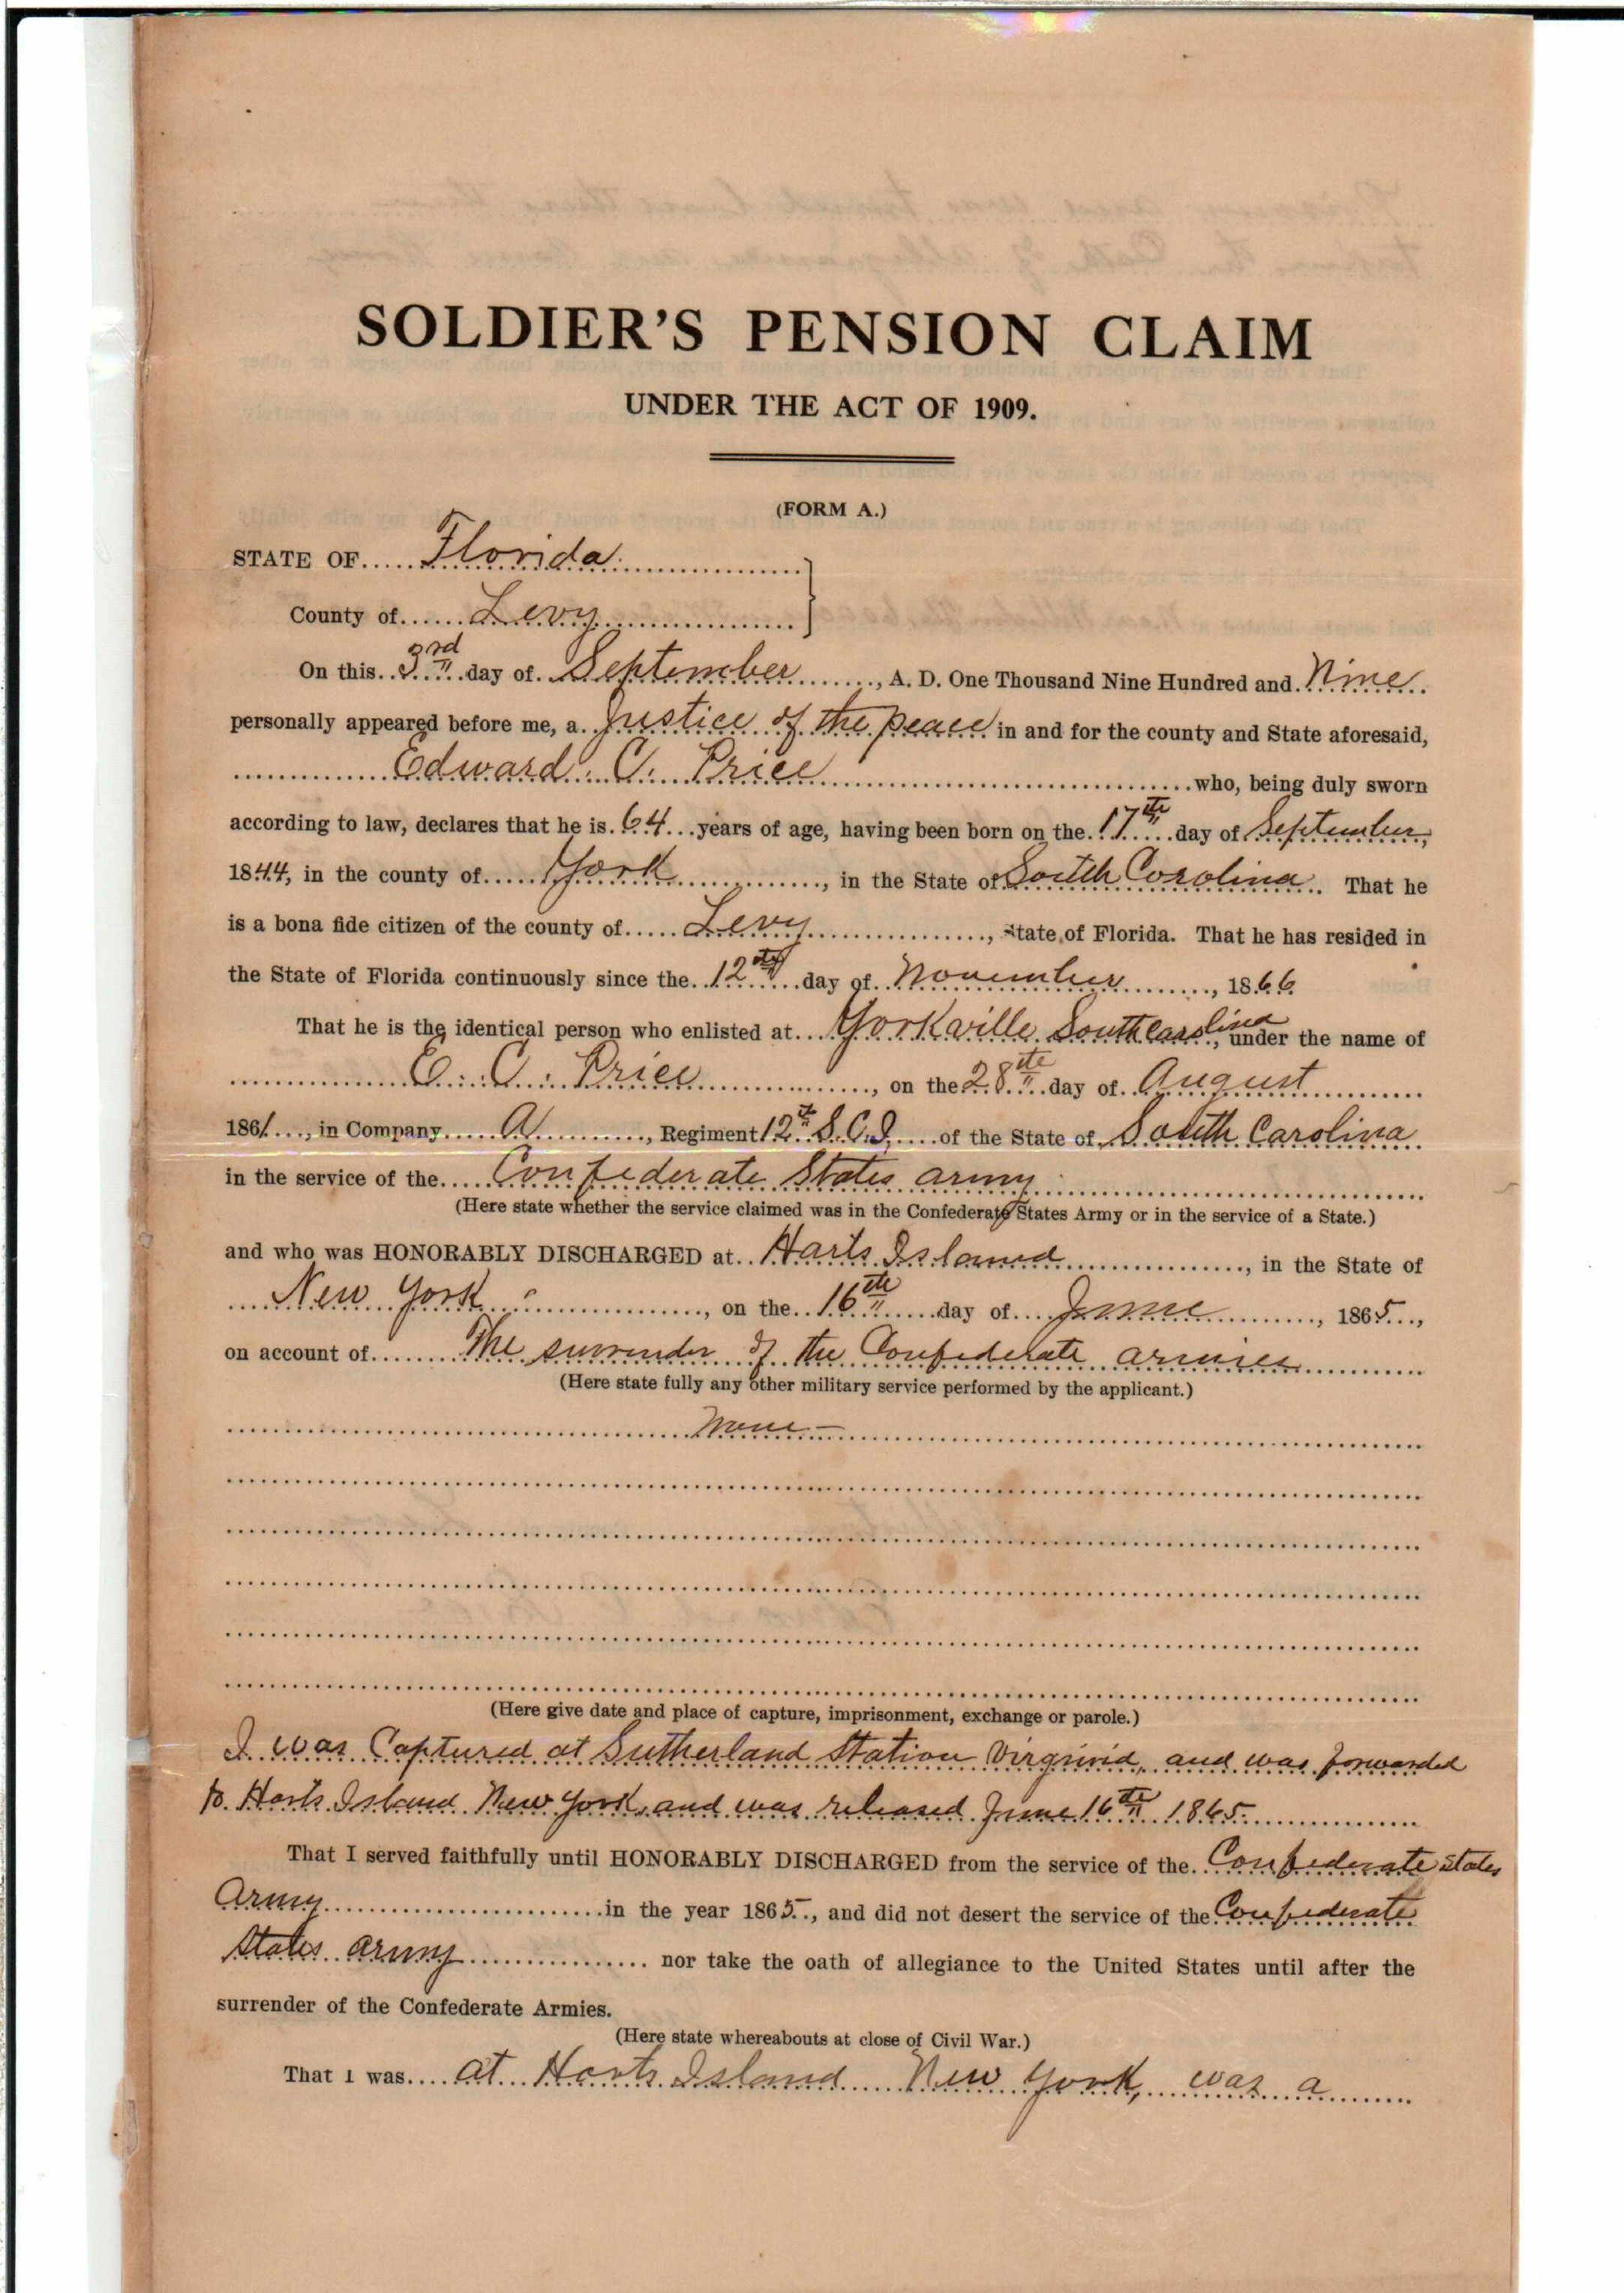 SOLDIER'S PENSION CLAIM
UNDER THE ACT OF 1909.
(FORM A.)
STATE OF Florida
County of Levy
On this 3rd day of September, A. D. One Thousand Nine Hundred and Nine
personally appeared before me, a Justice of the peace in and for the county and State aforesaid,
Edward C. Price who, being duly sworn
according to law, declares that he is 64 years of age, having been born on the 17th day of September,
1844, in the county of York, in the State of South Carolina. That he
is a bona fide citizen of the county of Levy, State of Florida. That he has resided in
the State of Florida continuously since the 12th day of November, 1866
That he is the identical person who enlisted at Yorkville South Carolina, under the name of
E. C. Price, on the 28th day of August
1861, in Company A, Regiment 12th S.C.I, of the State of South Carolina
in the service of the Confederate States army
(Here state whether the service claimed was in the Confederate States Army or in the service of a State.)
and who was HONORABLY DISCHARGED at Harts Island, in the State of
New York, on the 16th day of June, 1865,
on account of The surrender of the Confederate armies
(Here state fully any other military service performed by the applicant.)
None
(Here give date and place of capture, imprisonment, exchange or parole.)
I was Captured at Sutherland Station Virginia, and was forwarded
to Harts Island New York, and was released June 16th 1865.
That I served faithfully until HONORABLY DISCHARGED from the service of the Confederate States
Army in the year 1865, and did not desert the service of the Confederate
States army nor take the oath of allegiance to the United States until after the
surrender of the Confederate Armies.
(Here state whereabouts at close of Civil War.)
That I was at Harts Island New York, was a